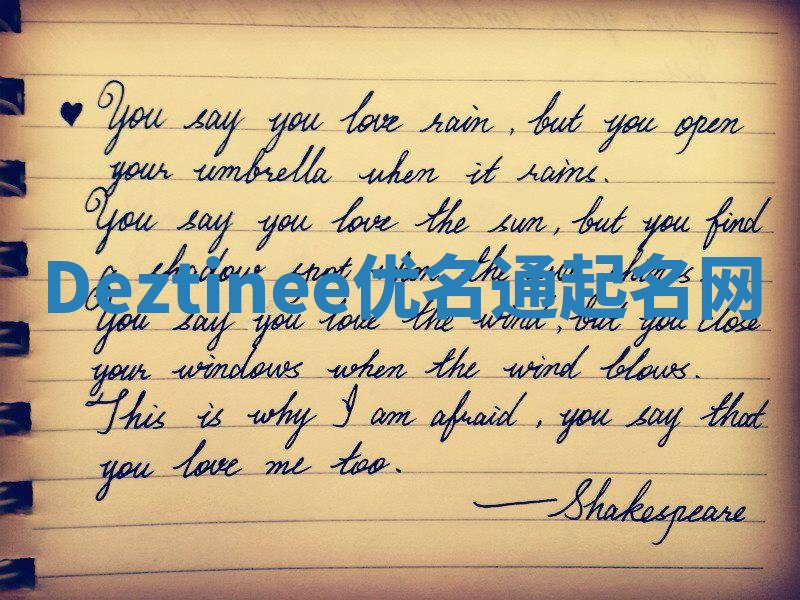 ♥ You say you love rain, but you open
your umbrella when it rains.
You say you love the sun, but you find
a shadow spot when the sun shines.
Deztinee优名通起名网
You say you love the wind, but you close
your windows when the wind blows.
This is why I am afraid, you say that
you love me too.
—Shakespeare